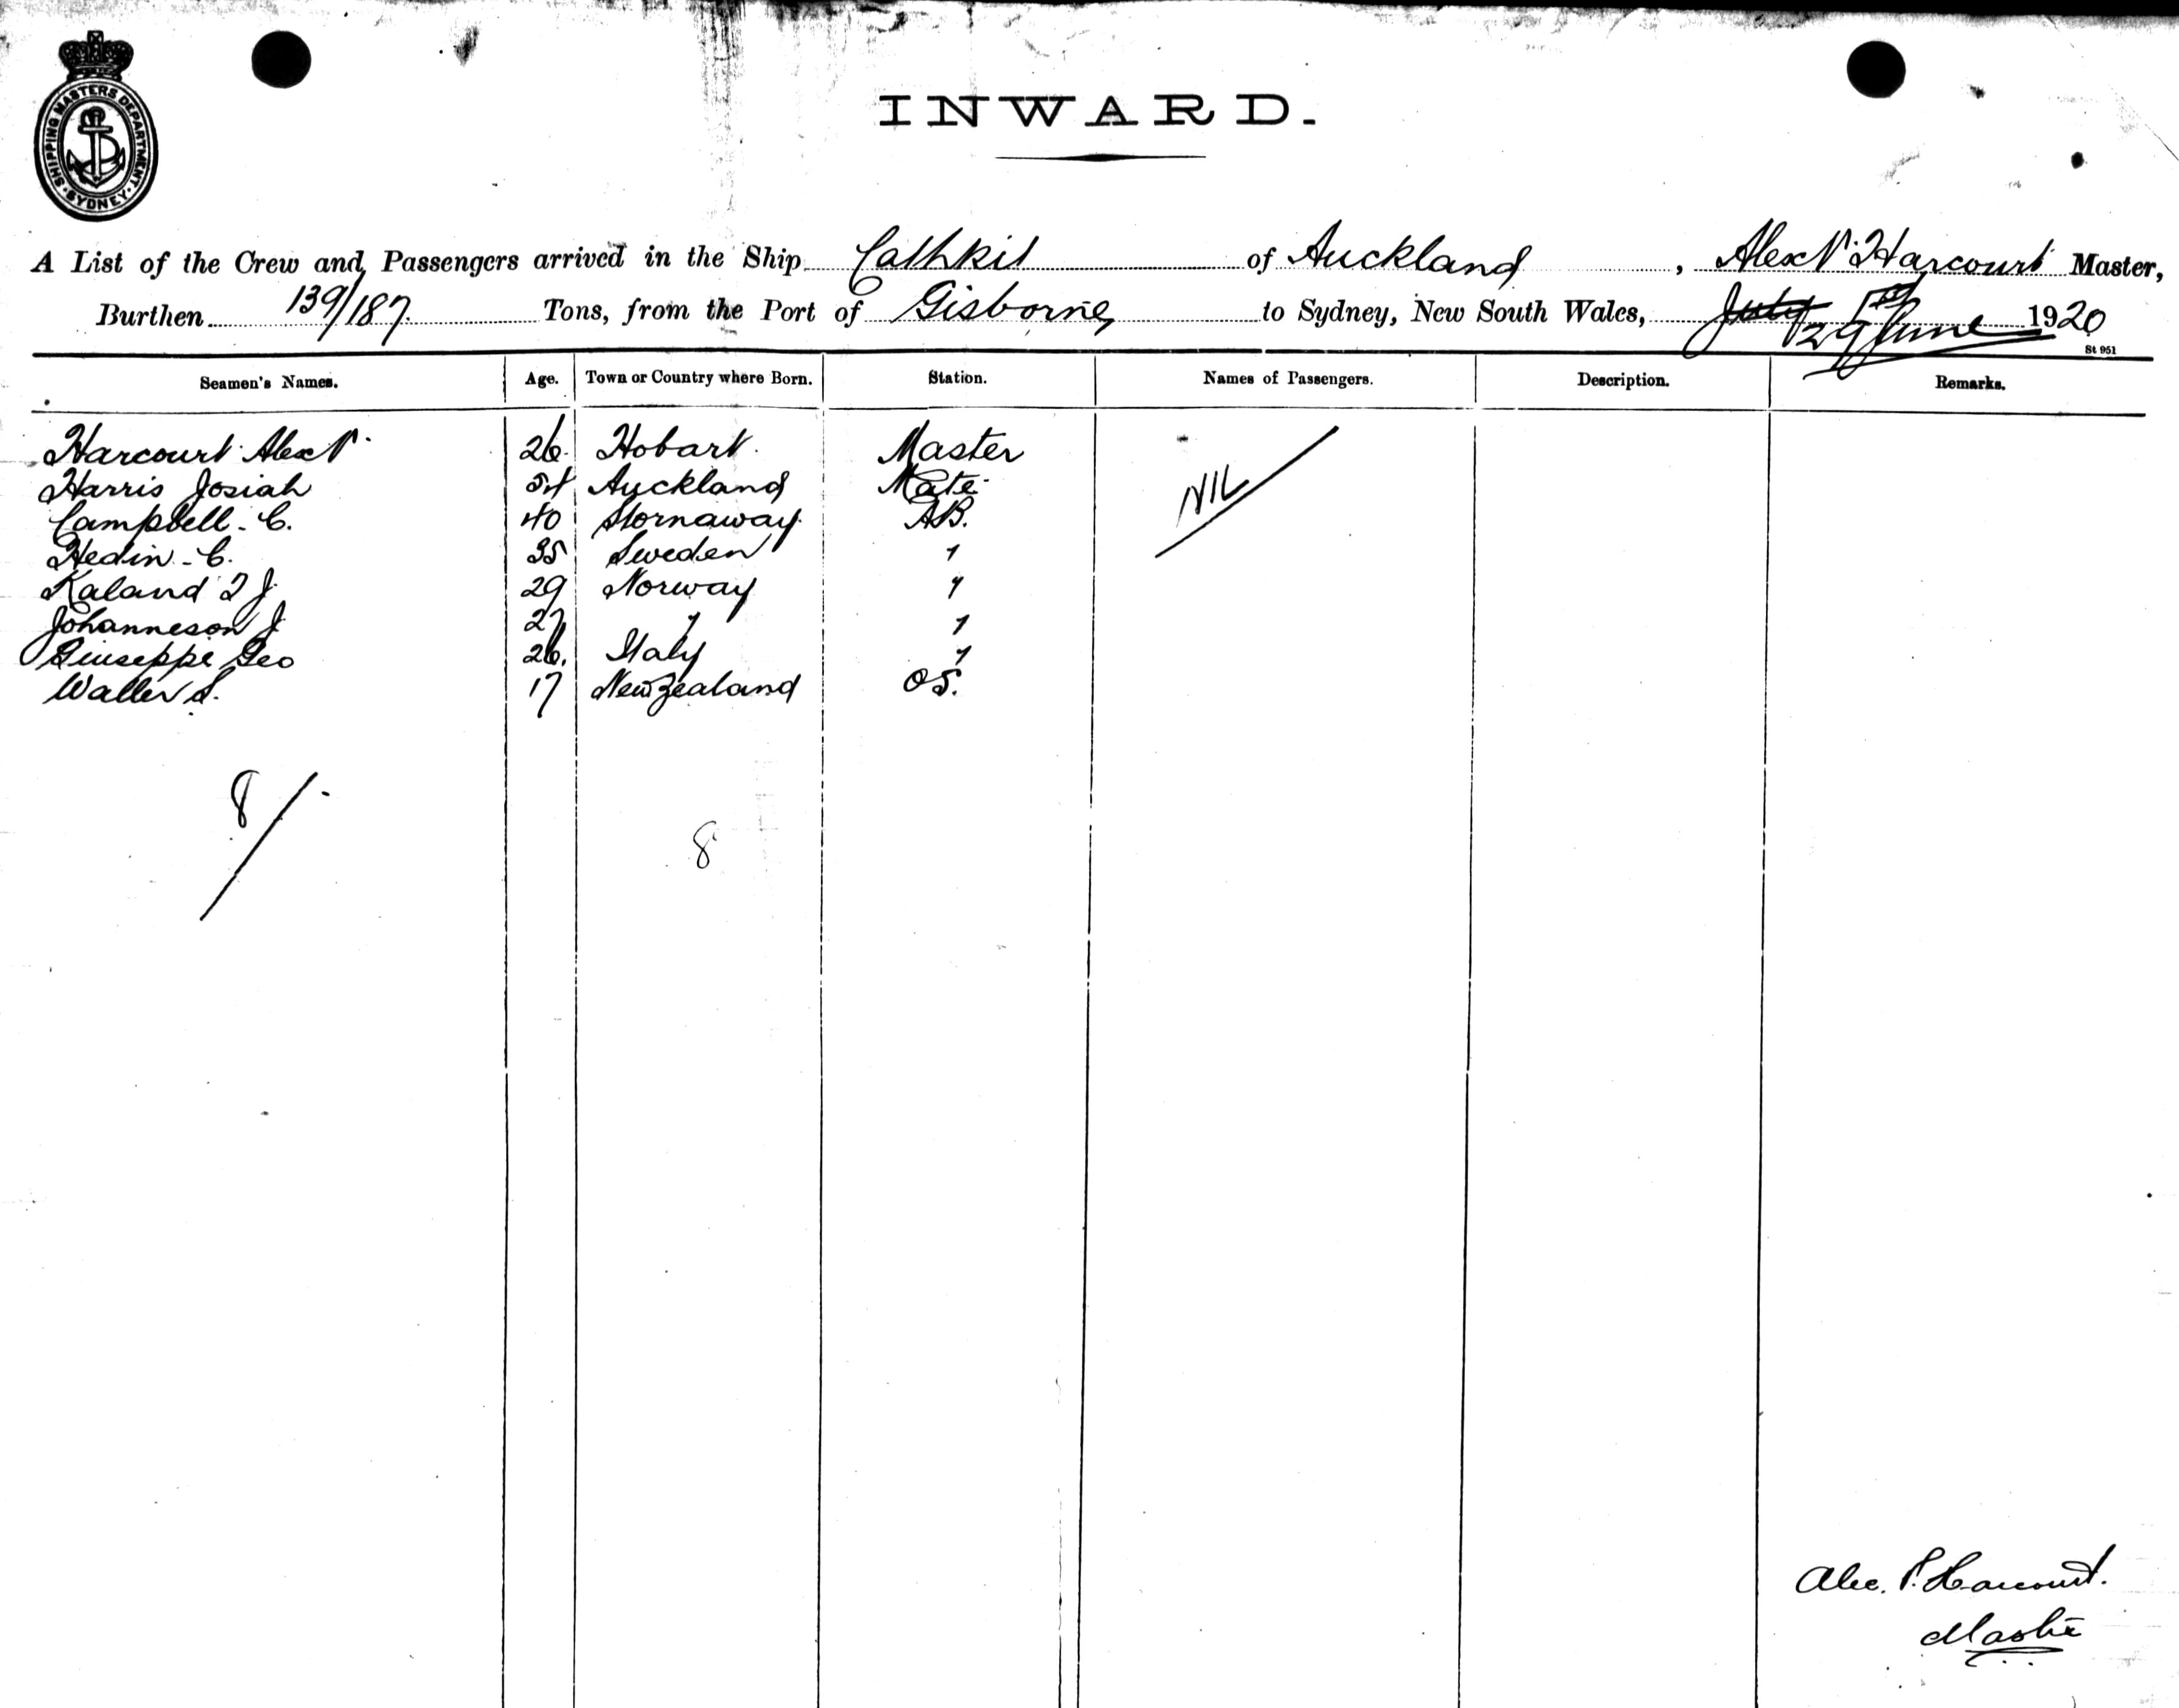 SHIPPING MASTERS DEPARTMENT · SYDNEY ·
INWARD.
A List of the Crew and Passengers arrived in the Ship Cathkit of Auckland, Alex P. Harcourt Master,
Burthen 139/187. Tons, from the Port of Gisborne to Sydney, New South Wales, July 1st 29 June 1920
St 951
Seamen's Names. Age. Town or Country where Born. Station. Names of Passengers. Description. Remarks.
Harcourt Alex P. 26. Hobart. Master
Harris Josiah 54 Auckland Mate NIL
Campbell - C. 40 Stornaway. AB.
Hedin - C. 35 Sweden "
Kaland T J. 29 Norway "
Johanneson J 27 " "
Giuseppe Geo 26. Italy "
Waller S. 17 New Zealand OS.
8/-
8
Alec. P. Harcourt.
Master